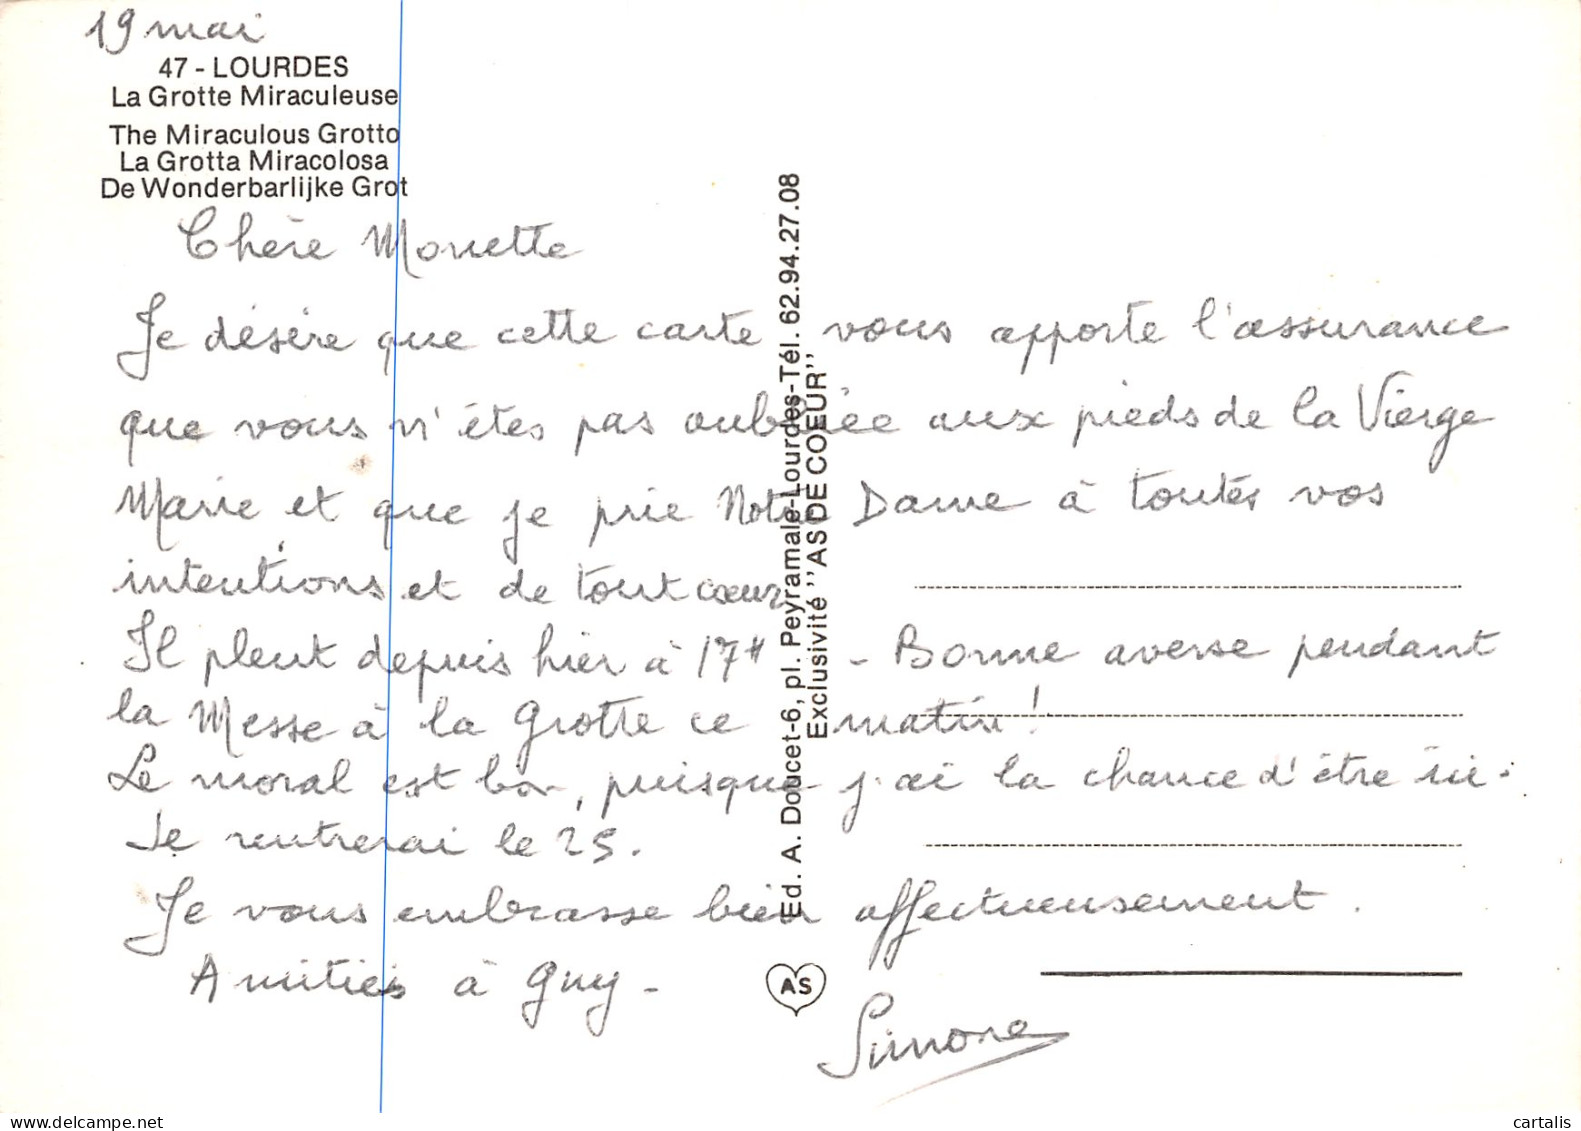 19 mai
47 - LOURDES
La Grotte Miraculeuse
The Miraculous Grotto
La Grotta Miracolosa
De Wonderbarlijke Grot
Chère Monette
Je désire que cette carte vous apporte l'assurance
que vous n'êtes pas oubliée aux pieds de la Vierge
Marie et que je prie Notre Dame à toutes vos
intentions et de tout cœur
Il pleut depuis hier à 17H - Bonne averse pendant
la Messe à la Grotte ce matin!
Le moral est bon, puisque j'ai la chance d'être ici.
Je rentrerai le 25.
Je vous embrasse bien affectueusement.
Amitiés à Guy -
Simone
Ed. A. Doucet-6, pl. Peyramale-Lourdes-Tél. 62.94.27.08
Exclusivité "AS DE COEUR"
AS
cartalis
cartalis.com